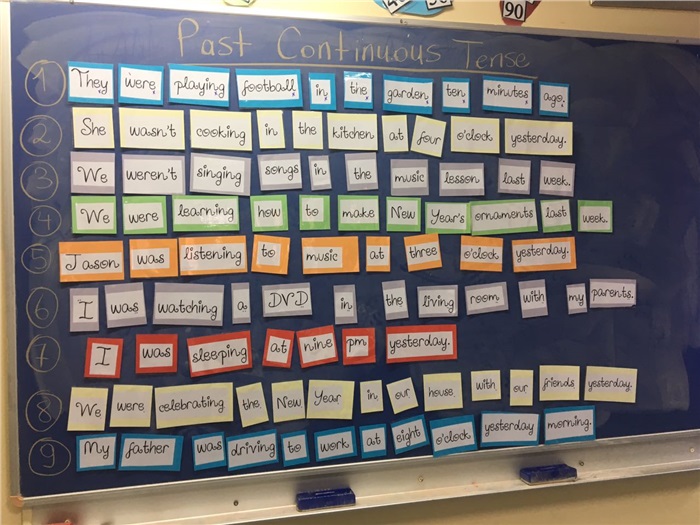 90
Past Continuous Tense
1 They were playing football in the garden ten minutes ago.
2 She wasn't cooking in the kitchen at four o'clock yesterday.
3 We weren't singing songs in the music lesson last week.
4 We were learning how to make New Year's ornaments last week.
5 Jason was listening to music at three o'clock yesterday.
6 I was watching a DVD in the living room with my parents.
7 I was sleeping at nine pm yesterday.
8 We were celebrating the New Year in our house with our friends yesterday.
9 My father was driving to work at eight o'clock yesterday morning.